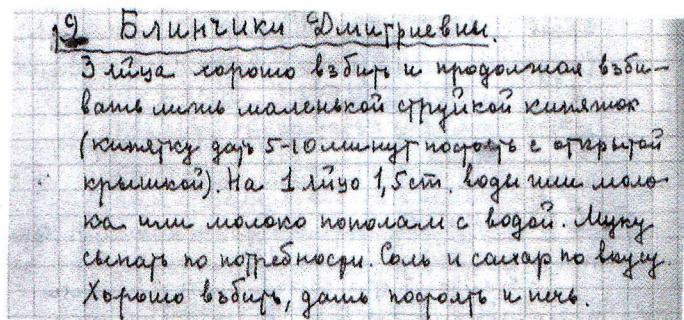 9 Блинчики Дмитриевны.
3 яйца хорошо взбить и продолжая взби-
вать лить маленькой струйкой кипяток
(кипятку дать 5-10 минут постоять с открытой
крышкой). На 1 яйцо 1,5 ст. воды или моло-
ка или молоко пополам с водой. Муку
сыпать по потребности. Соль и сахар по вкусу.
Хорошо взбить, дать постоять и печь.